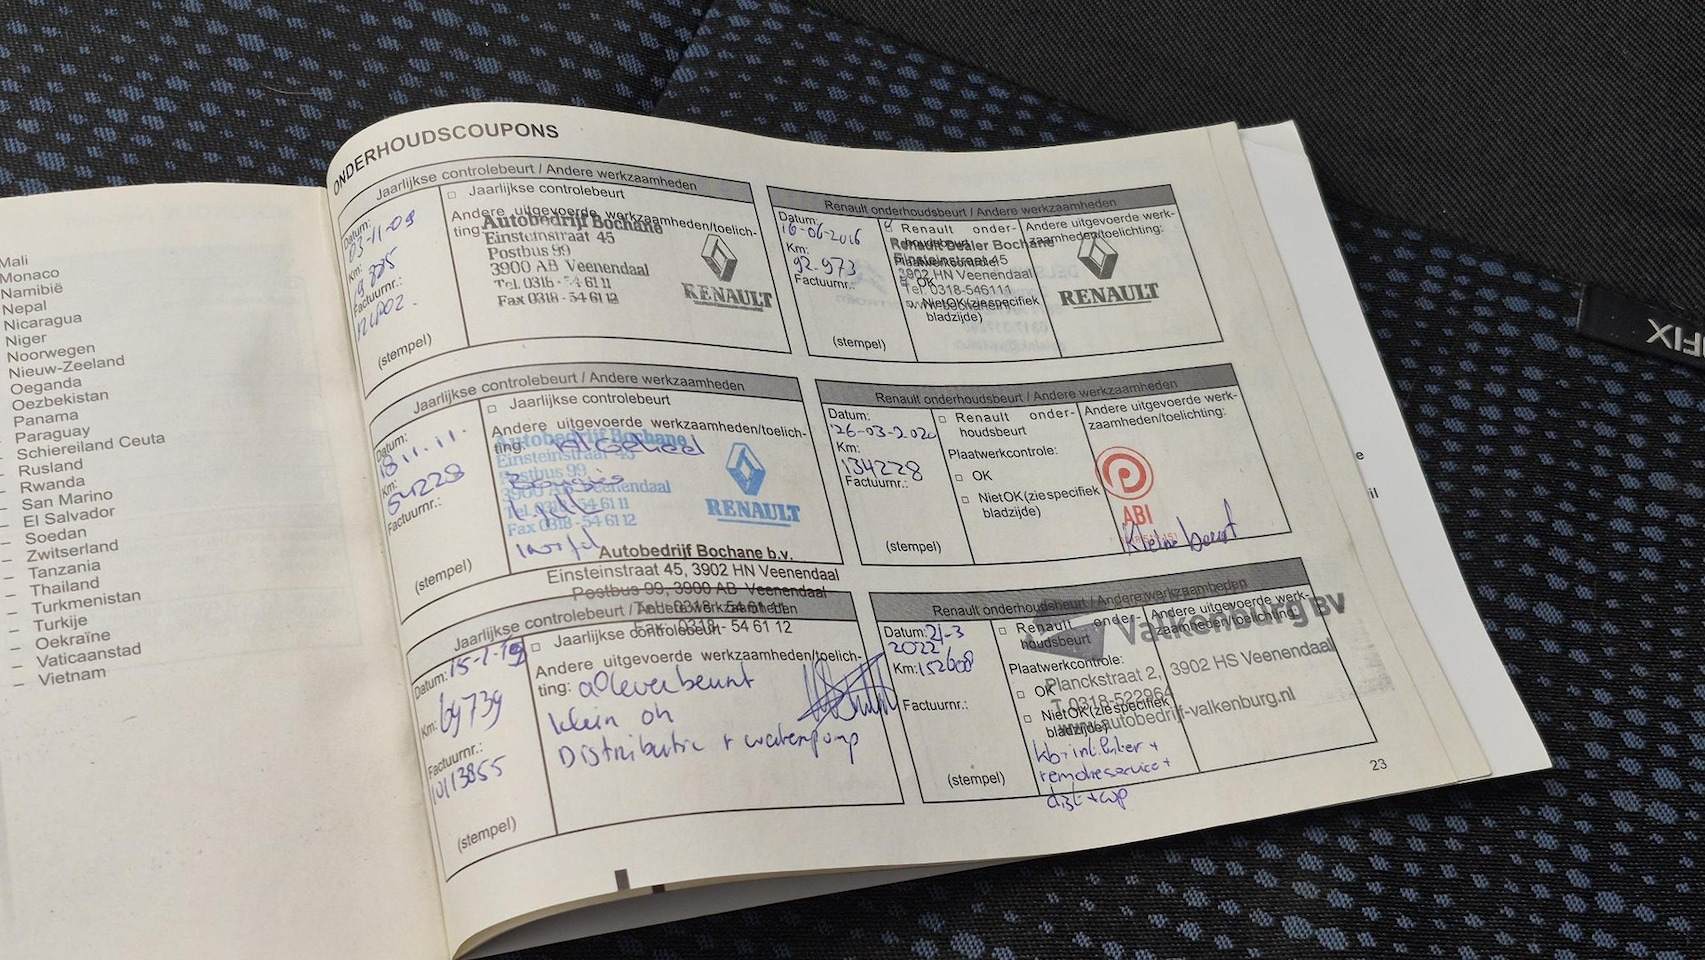 Mali
Monaco
Namibië
Nepal
Nicaragua
Niger
Noorwegen
Nieuw-Zeeland
Oeganda
Oezbekistan
Panama
Paraguay
Schiereiland Ceuta
– Rusland
– Rwanda
– San Marino
– El Salvador
– Soedan
– Zwitserland
– Tanzania
– Thailand
– Turkmenistan
– Turkije
– Oekraïne
– Vaticaanstad
– Vietnam
ONDERHOUDSCOUPONS
Jaarlijkse controlebeurt / Andere werkzaamheden
Datum:
03-11-09
Km:
Factuurnr.:
(stempel)
□ Jaarlijkse controlebeurt
Andere uitgevoerde werkzaamheden/toelich-
ting:
Autobedrijf Bochane
Einsteinstraat 45
Postbus 99
3900 AB Veenendaal
Tel. 0318 - 54 61 11
Fax 0318 - 54 61 12
RENAULT
Jaarlijkse controlebeurt / Andere werkzaamheden
Datum:
18.11.11.
Km:
54228
Factuurnr.:
(stempel)
□ Jaarlijkse controlebeurt
Andere uitgevoerde werkzaamheden/toelich-
ting:
Autobedrijf Bochane
Einsteinstraat 45
Postbus 99
3900 AB Veenendaal
Tel. 0318 - 54 61 11
Fax 0318 - 54 61 12
RENAULT
Autobedrijf Bochane b.v.
Einsteinstraat 45, 3902 HN Veenendaal
Postbus 99, 3900 AB Veenendaal
Tel. 0318 - 54 61 11
Fax. 0318 - 54 61 12
Jaarlijkse controlebeurt / Andere werkzaamheden
Datum:
Km: 69739
Factuurnr.:
10113855
(stempel)
□ Jaarlijkse controlebeurt
Andere uitgevoerde werkzaamheden/toelich-
ting: afleverbeurt
klein oh
Distributie + waterpomp
Renault onderhoudsbeurt / Andere werkzaamheden
Datum:
16-06-2016
Km:
92-973
Factuurnr.:
(stempel)
Renault onder-
houdsbeurt
Plaatwerkcontrole:
□ OK
□ Niet OK (zie specifiek
bladzijde)
Renault Dealer Bochane
Einsteinstraat 45
3902 HN Veenendaal
Tel. 0318-546111
Andere uitgevoerde werk-
zaamheden/toelichting:
RENAULT
Renault onderhoudsbeurt / Andere werkzaamheden
Datum:
26-03-2020
Km:
134228
Factuurnr.:
(stempel)
□ Renault onder-
houdsbeurt
Plaatwerkcontrole:
□ OK
□ Niet OK (zie specifiek
bladzijde)
Andere uitgevoerde werk-
zaamheden/toelichting:
ABI
Kleine beurt
Renault onderhoudsbeurt / Andere werkzaamheden
Datum: 21-3
2022
Km: 152608
Factuurnr.:
(stempel)
□ Renault onder-
houdsbeurt
Plaatwerkcontrole:
□ OK
□ Niet OK (zie specifiek
bladzijde)
Andere uitgevoerde werk-
zaamheden/toelichting:
Valkenburg BV
Planckstraat 2, 3902 HS Veenendaal
T. 0318-522964
www.autobedrijf-valkenburg.nl
remolieservice +
dist + wp
23